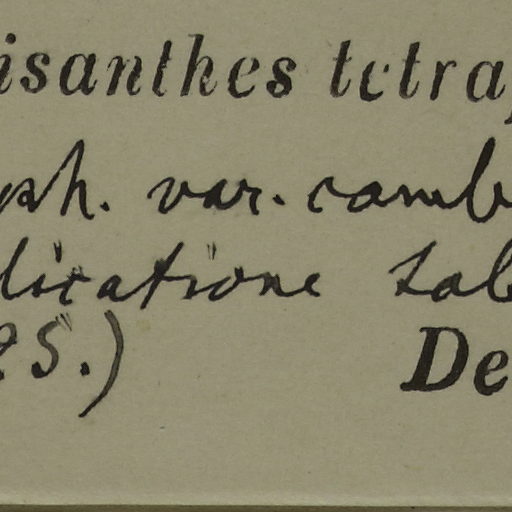 isanthes tetra
ph. var. camb
dicatione Lab
25.) De